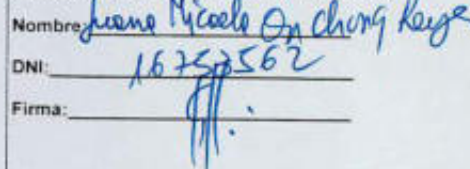 Nombre: Juana Micaela On Chong Kenge
DNI: 16753562
Firma: